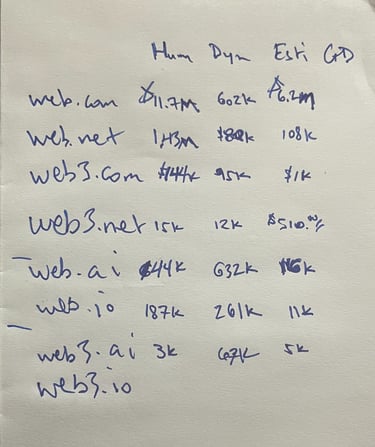 Hum Dyn Esti GD
web.com $11.7M 602k $6.2M
web.net 1.13M 108k
web3.com $144k 95k $1k
web3.net 15k 12k $510.00
web.ai 632k
web.io 187k 261k 11k
web3.ai 3k 5k
web3.io